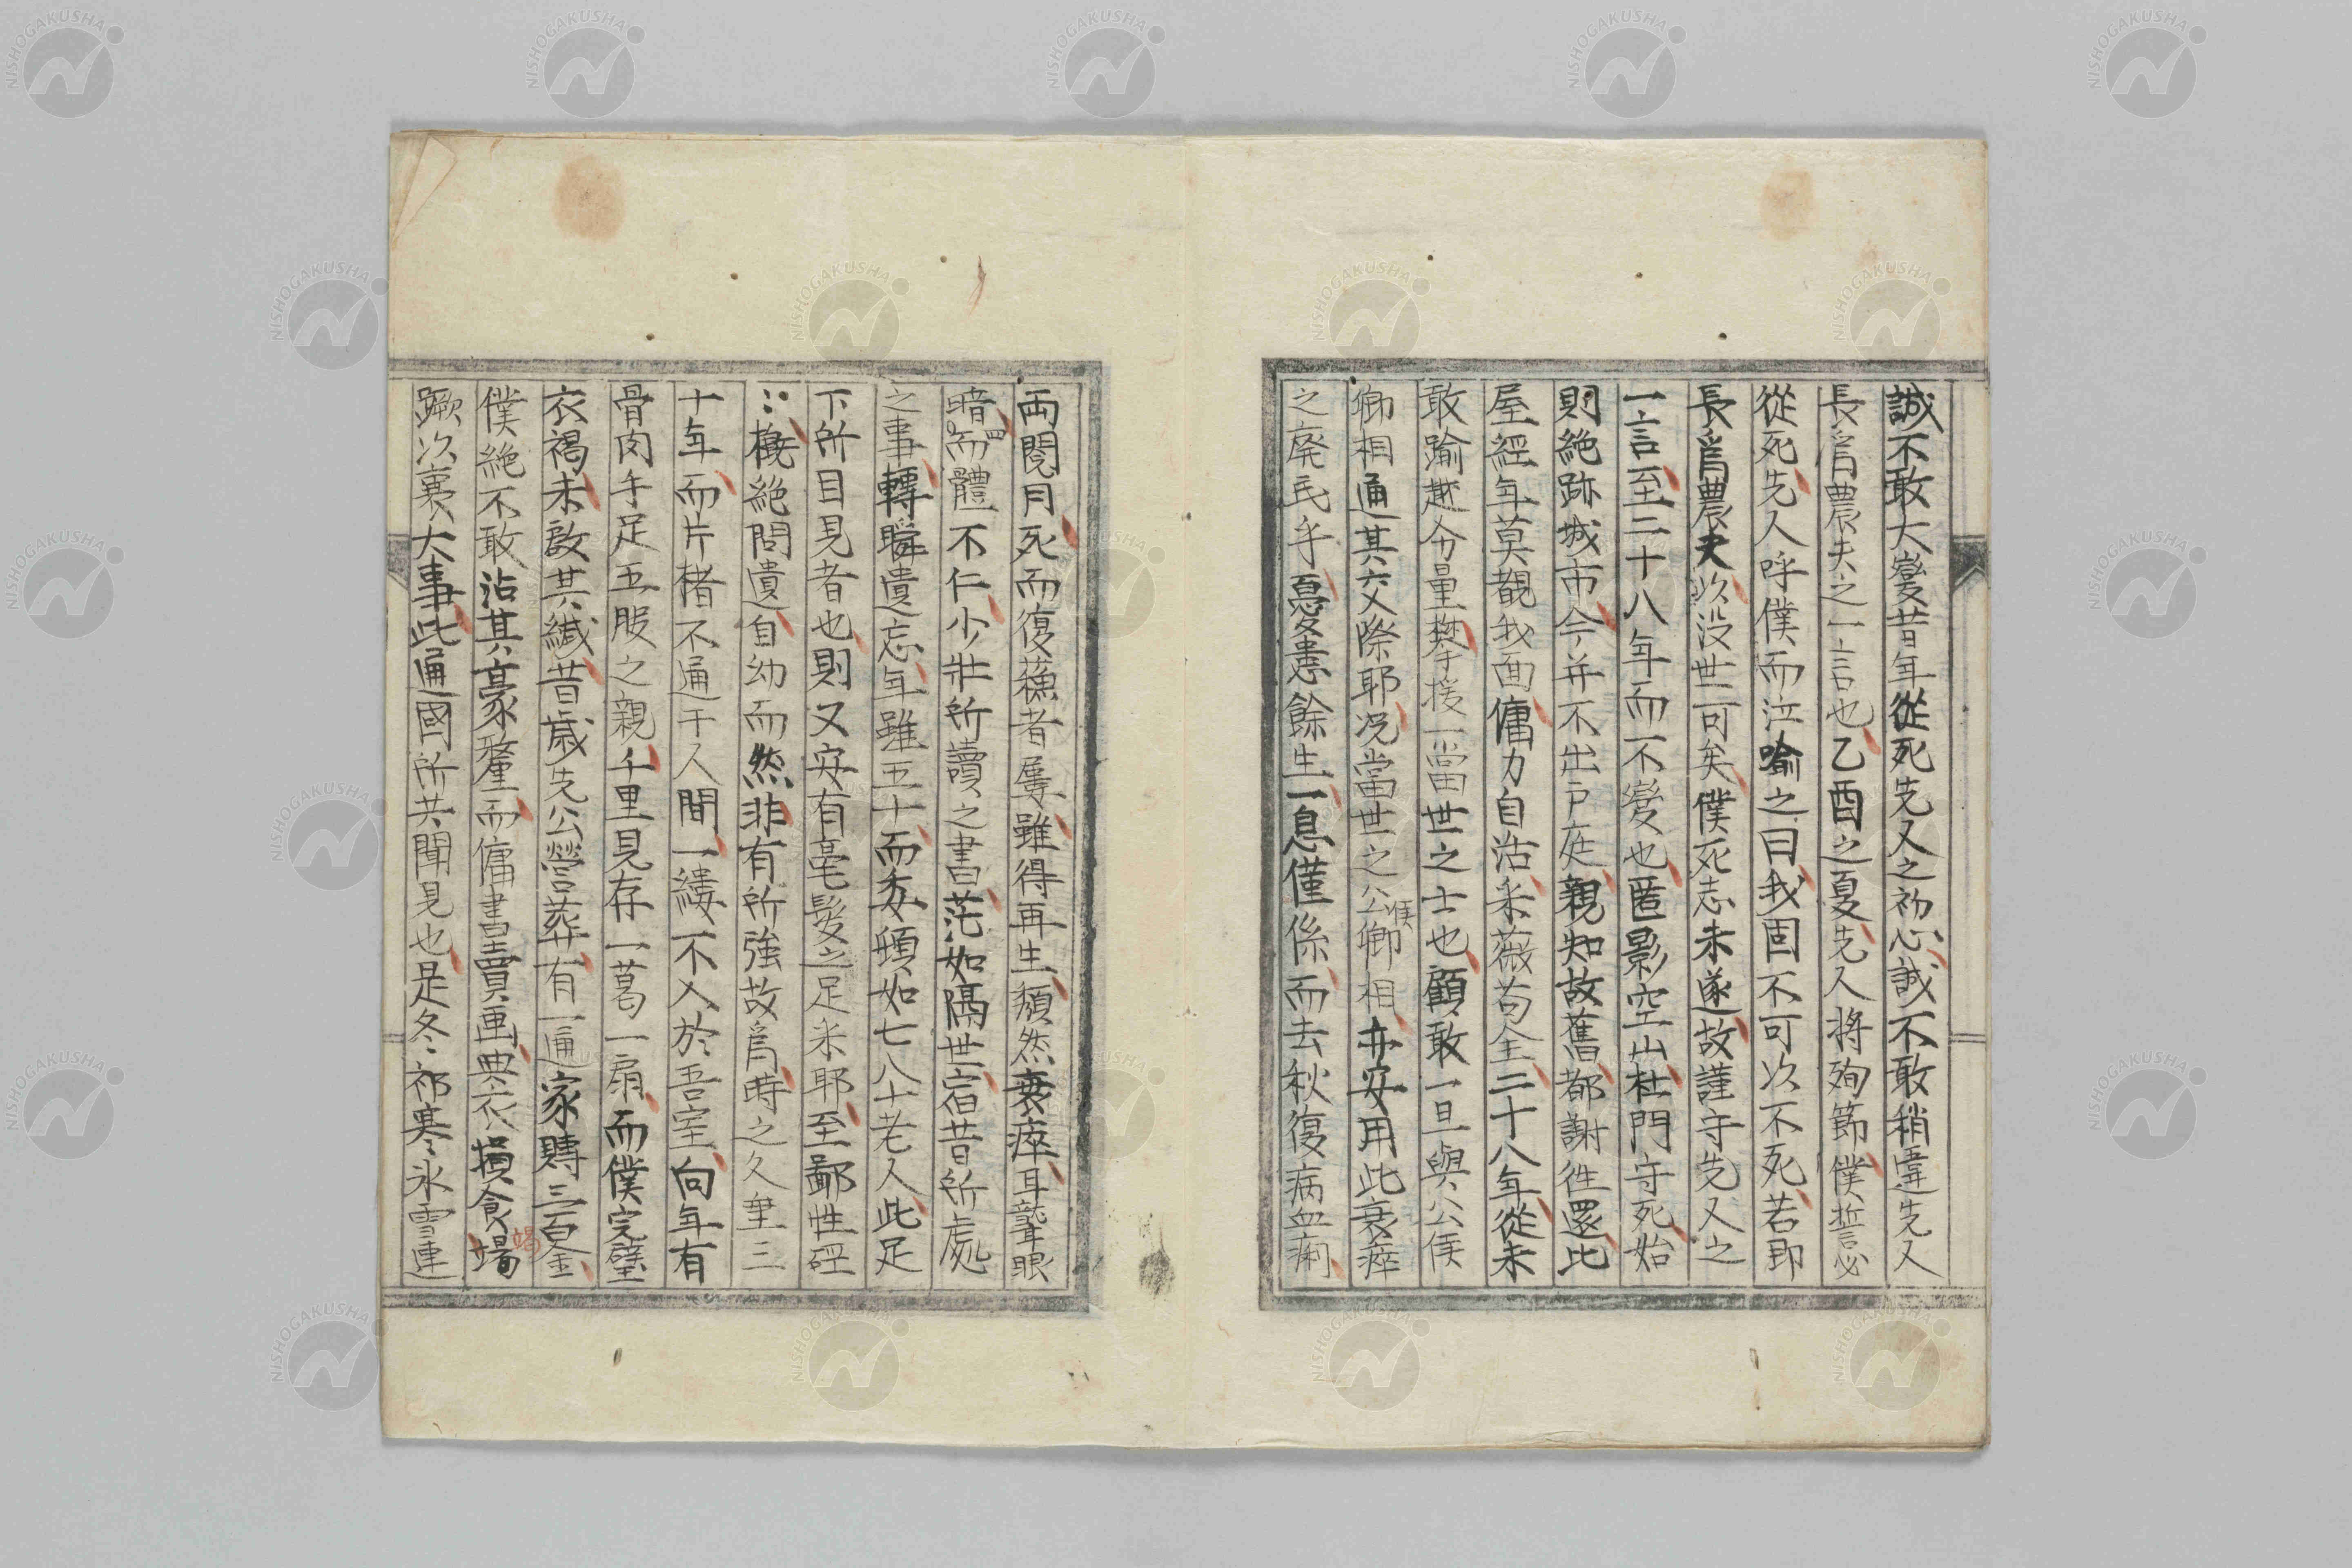 誠不敢大變昔年從死先人之初心誠不敢稍違先人
長爲農夫之一言也乙酉之夏先人將殉節僕誓必
從死先人呼僕而泣喻之曰我固不可以不死若即
長爲農夫以没世可矣僕死志未遂故謹守先人之
一言至二十八年而不變也匿影空山杜門守死始
則絶跡城市今并不出户庭親知故舊都謝往還比
屋經年莫覩我面傭力自活采薇苟全二十八年從未
敢踰越分量攀援一當世之士也顧敢一旦與公侯
卿相通其交際耶况當世之公侯卿相亦安用此衰瘁
之廃民乎憂患餘生一息僅係而去秋復病血痢
両閲月死而復蘓者屢雖得再生頽然衰瘁耳聾眼
暗而四體不仁少壯所讀之書茫如隔世宿昔所處
之事轉瞬遺忘年雖五十而委頓如七八十老人此足
下所目見者也則又安有毫髪之足采耶至鄙性硜
〻槪絶問遺自幼而然非有所強故爲時之久垂三
十年而片楮不通于人間一縷不入於吾室向年有
骨肉手足五服之親千里見存一葛一扇而僕完璧
衣褐未啟其緘昔歳先公營葬有一通家賻三百金
僕絶不敢沾其豪釐而傭書賣画典衣損食竭
蹶以襄大事此通國所共聞見也是冬祁寒氷雪連
NISHOGAKUSHA